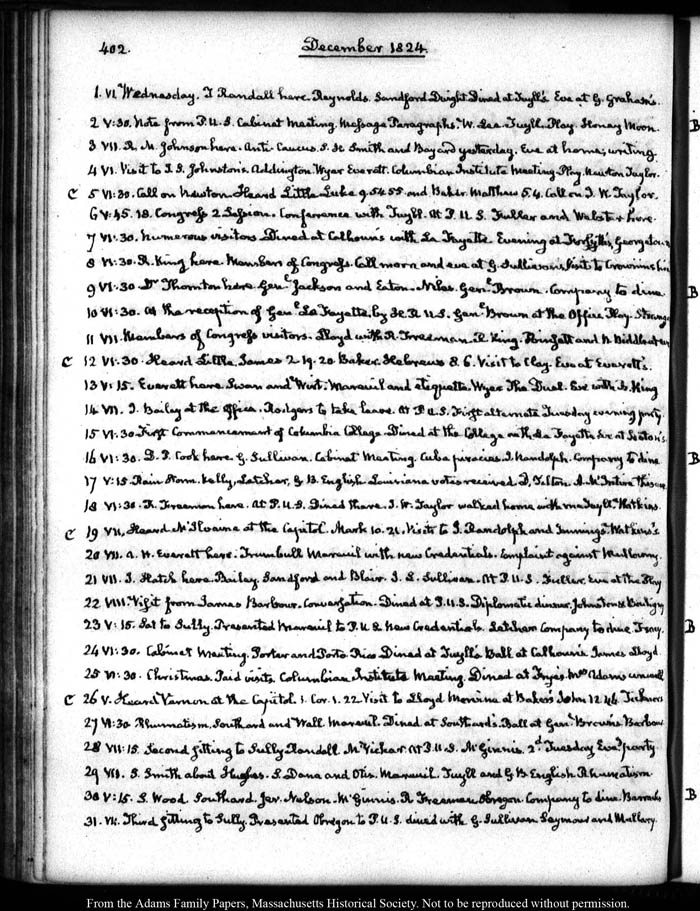 402.
December 1824.
1. VI. Wednesday. T Randall here. Reynolds. Sandford Dwight Dined at Tuyll's Eve at G. Graham's.
2 V:30. Note from P.U.S. Cabinet Meeting. Message Paragraphs. W. Lee. Tuyll. Play. Honey Moon.
3 VII. R. M. Johnson here. Anti Caucus. S. H Smith and Bayard yesterday. Eve at home; writing.
4 VI. Visit to J. S. Johnston's. Addington Wyer Everett. Columbian Institute Meeting Play. Newton Taylor.
C 5 VI:30. Call on Newton Heard Little Luke 9. 54 55 and Baker. Matthew 5. 4. Call on J. W. Taylor.
6 V:45. 18. Congress 2 Session. Conference with Tuyll. At P. U. S. Fuller and Webster here.
7 VI:30. Numerous visitors Dined at Calhoun's with La Fayette. Evening at Forsyth's, Georgetown
8 VI:30. R. King here. Members of Congress. Call morn and eve at G. Sullivan's Visit to Crowninshin
9 VI:30 Dr. Thornton here Genl. Jackson and Eaton. Niles. Genl. Brown. Company to dine
10 VI:30. At the reception of Genl. La Fayette, by H. R. U. S. Genl. Brown at the Office Play. Strange
11 VII. Members of Congress visitors. Lloyd with R. Freeman. R. King. Poinsett and N. Biddle
C 12 VI:30. Heard Little. James 2. 19. 20 Baker. Hebrews 8. 6. Visit to Clay. Eve at Everett's.
13 V:15. Everett here. Swan and Wirt. Mareuil and etiquette. Wyer The Duel. Eve with R. King
14 VII. J. Bailey at the Office. Rodgers to take leave. At P. U. S. First alternate Tuesday evening party.
15 VI:30 First Commencement of Columbia College. Dined at the College with La Fayette Eve at Seaton's
16 VI:30. D. P. Cook here G. Sullivan. Cabinet Meeting Cuba piracies. J. Randolph. Company to dine
17 V:15 Rain Storm. Kelly, Letcher, G B. English. Louisiana votes received D, Tilton. A. McIntire
18 VI:30. R. Freeman here. At P. U. S. Dined there. J. W. Taylor walked home with me Tuyll. Watkins
C 19 VII, Heard McIlvaine at the Capitol. Mark 10. 21. Visits to J. Randolph and Jennings. Watkins's
20 VII. A. H. Everett here. Trumbull Mareuil with new Credentials. Complaint against Mullowny
21 VII. J. Hatch here. Bailey, Sandford and Blair. J. L. Sullivan. At P. U. S. Fuller. Eve at the Play
22 VIII. Visit from James Barbour. Conversation. Dined at P.U.S. Diplomatic dinner. Johnston &
23 V:15. Sat to Sully. Presented Mareuil to P. U. S New Credentials. Letcher Company to dine.
24 VI:30. Cabinet Meeting. Porter and Porto Rico Dined at Tuyll's Ball at Calhoun's James Lloyd
25 VI:30. Christmas. Paid visits. Columbian Institute Meeting. Dined at Frye's. Mrs Adams unwell
C 26 V. Heard Vernon at the Capitol. 1. Cor. 1. 22. Visit to Lloyd Monroe at Baker's John 12 46. Ticknor
27 VI:30 Rheumatism. Southard and Wall Mareuil. Dined at Southard's. Ball at Genl. Brown's. Barbour
28 VII:15. Second sitting to Sully Randall. McVickar. At P. U. S. McGinnis. 2d. Tuesday Eveg. party
29 VII. S. Smith about Hughes. S. Dana and Otis. Mareuil. Tuyll and G B English. Rheumatism
30 V:15. S. Wood. Southard, Jer. Nelson. McGinnis. R Freeman. Obregon. Company to dine.
31. VII. Third sitting to Sully. Presented Obregon to P. U. S. dined with G. Sullivan Seymour and Mallary.
B
B
B
B
B
From the Adams Family Papers, Massachusetts Historical Society. Not to be reproduced without permission.